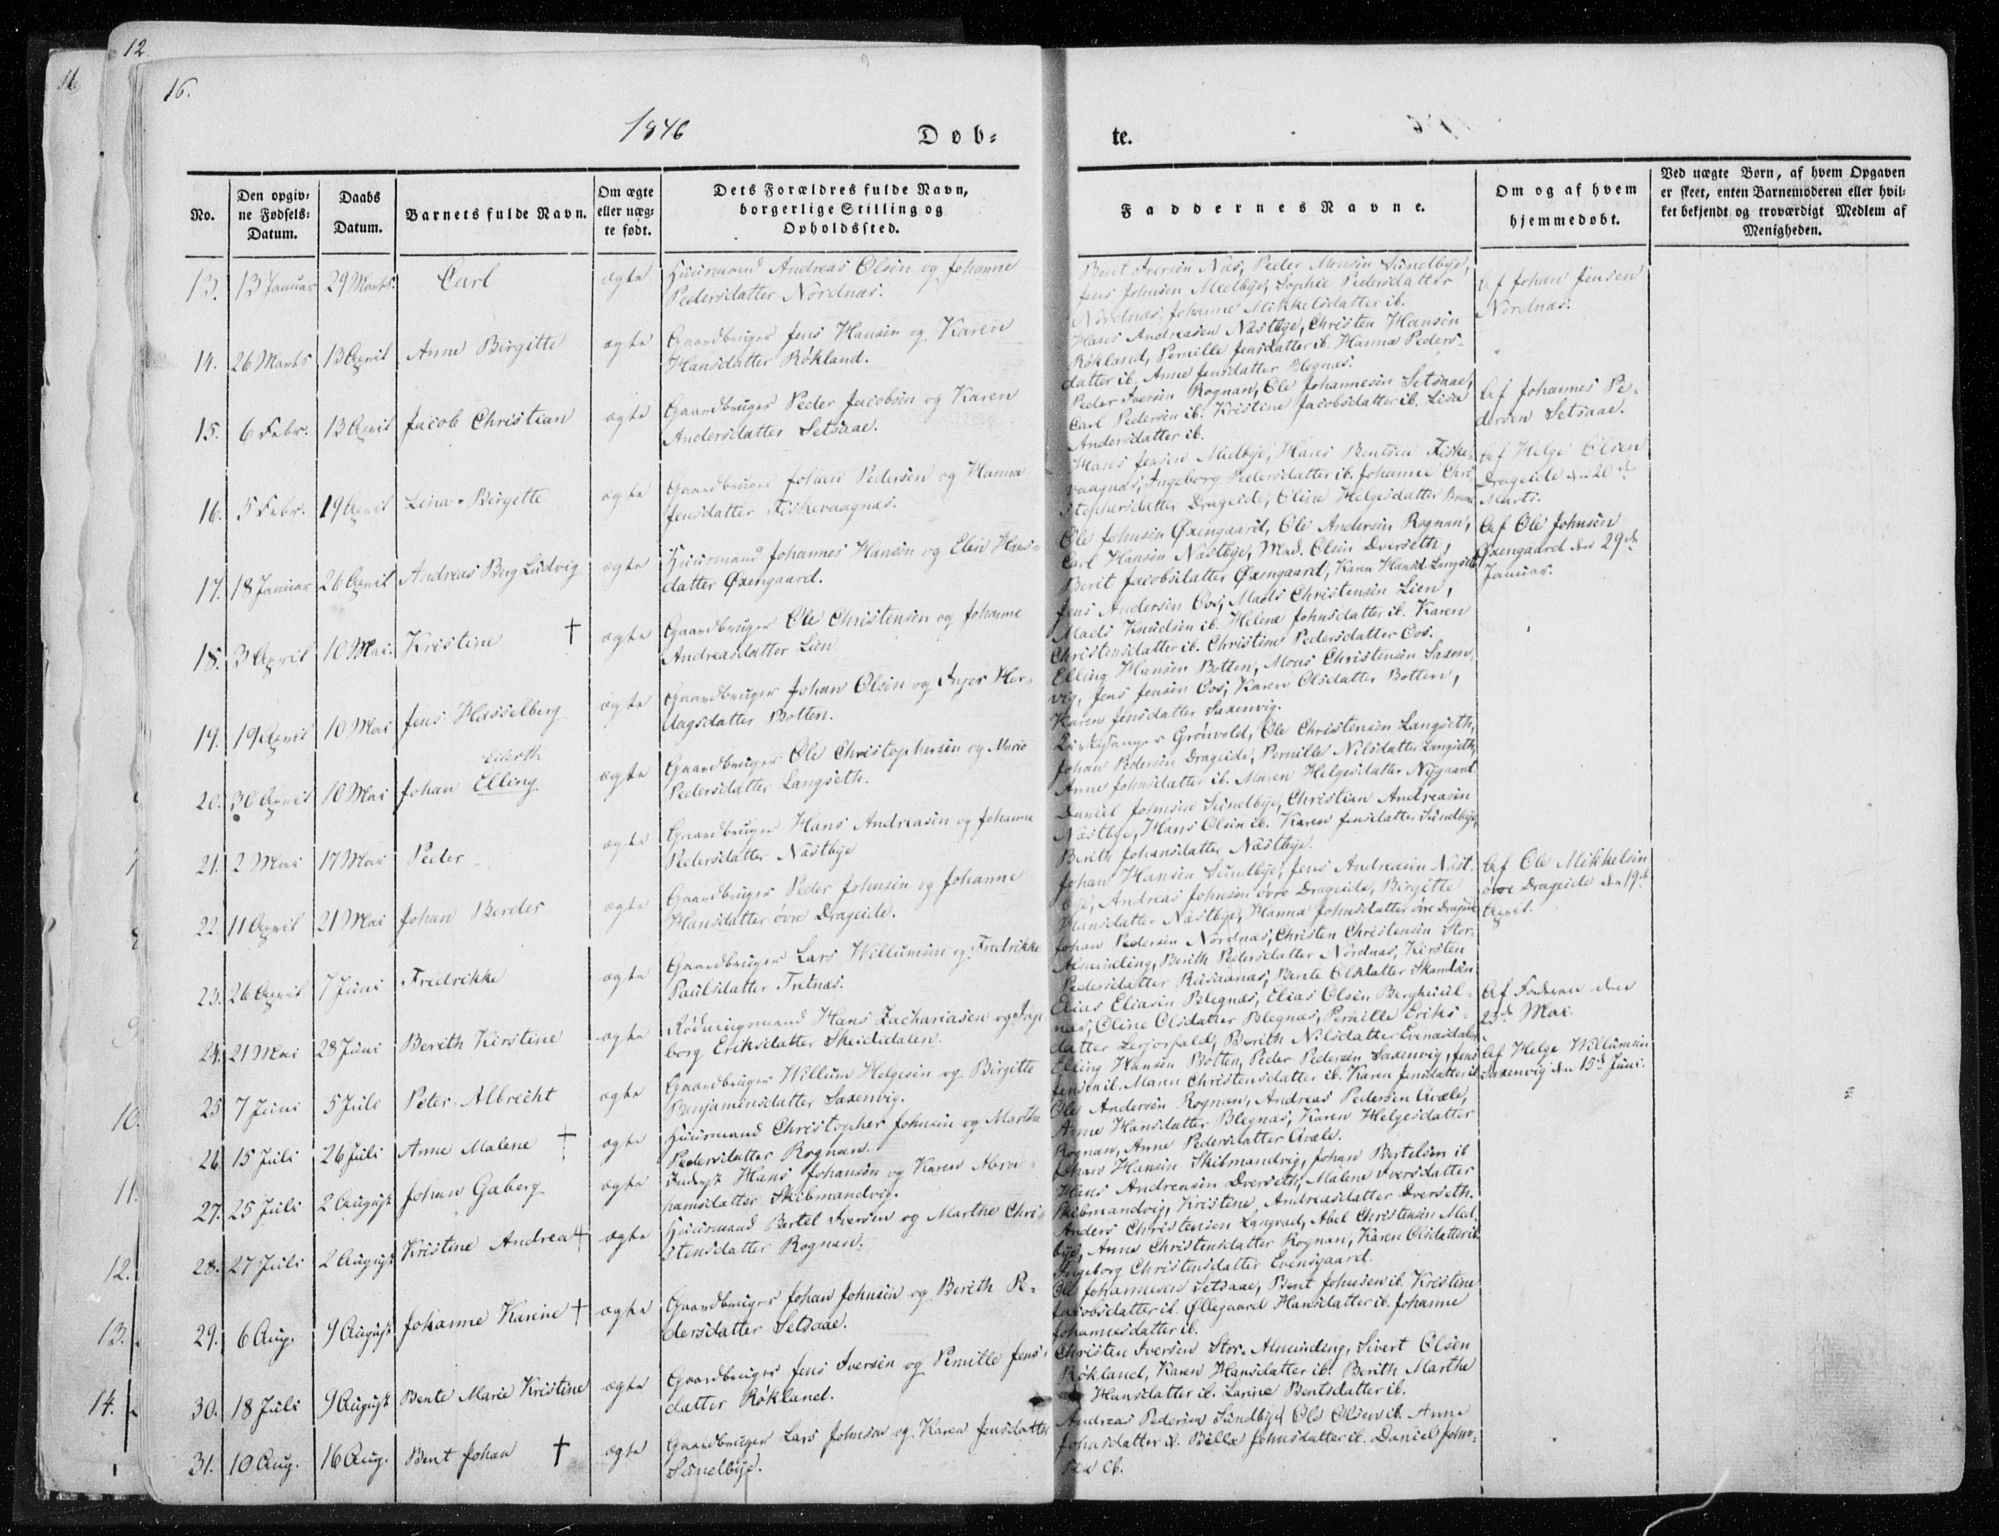 12.
11
16.
1846
Døb=
te.
No.
Den opgiv-
ne Fødsels-
Datum.
Daabs
Datum.
Barnets fulde Navn.
Om ægte
eller uæg-
te født.
Dets Forældres fulde Navn,
borgerlige Stilling og
Opholdssted.
Faddernes Navne.
Om og af hvem
hjemmedøbt.
Ved uægte Børn, af hvem Opgaven
er skeet, enten Barnemoderen eller hvil-
ket bekjendt og troværdigt Medlem af
Menigheden.
13. 13 Januar 29 Marts. Carl ægte Huusmand Andreas Olsen og Johanne
Pedersdatter Nordnæs.
Bent Iversen Næs, Peder Monsen Sundbye,
Jens Johnsen Medbye, Sophie Pedersdatter
Nordnæs, Johanne Mikkelsdatter ib.
Af Johan Jensen
Nordnæs.
14. 26 Marts 13 April Anne Birgitte ægte Gaardbruger Jens Hansen og Karen
Hansdatter Røkland.
Hans Andreasen Næstbye, Christen Hansen
Røkland, Pernille Jensdatter ib. Hanna Peders-
datter ib. Anne Jensdatter Blegnæs.
15. 6 Febr. 13 April Jacob Christian ægte Gaardbruger Peder Jacobsen og Karen
Andersdatter Setsaae.
Peder Iversen Rognan, Ole Johannesen Setsaae,
Carl Pedersen ib. Kristine Jacobsdatter ib. Lisa
Andersdatter ib.
Af Johannes Pe-
dersen Setsaae.
16. 5 Febr. 19 April Lina Birgitte ægte Gaardbruger Johan Pedersen og Hanna
Jensdatter Fiskevaagnæs.
Hans Jensen Medbye, Hans Bentsen Fiske-
vaagnæs, Ingeborg Pedersdatter ib. Johanne Chri-
stophersdatter Drageide, Oline Helgesdatter
Af Helge Olsen
Drageide den 20de
Marts.
17. 18 Januar 26 April Andreas Berg Ludvig ægte Huusmand Johannes Hansen og Elen Hans-
datter Øxengaard.
Ole Johnsen Øxengaard, Ole Andersen Rognan,
Carl Hansen Næstbye, Mad. Olsen Dverseth,
Berit Jacobsdatter Øxengaard, Karen Hansd. Langseth
Af Ole Johnsen
Øxengaard den 29de
Januar.
18. 3 April 10 Mai. Kristine † ægte Gaardbruger Ole Christensen og Johanne
Andreasdatter Lien.
Jens Andersen Oos, Mads Christensen Lien,
Mads Knudsen ib. Helene Johnsdatter ib. Karen
Christensdatter ib. Christine Pedersdatter Oos.
19. 19 April 10 Mai Jens Hasselberg ægte Gaardbruger Johan Olsen og Inger Her-
dagsdatter Botten.
Elling Hansen Botten, Mons Christensen Saxen-
vig, Jens Jensen Oos, Karen Olsdatter Botten,
Karen Jensdatter Saxenvig.
20. 30 April 10 Mai Johan Elling ægte Gaardbruger Ole Christophersen og Maris
Pedersdatter Langseth.
Kirkesanger Grønvold, Ole Christensen Langseth,
Johan Pedersen Drageide, Pernille Nilsdatter Langseth,
Anne Johnsdatter ib. Maren Helgesdatter Nygaard.
21. 2 Mai 17 Mai Peder ægte Gaardbruger Hans Andreasen og Johanne
Pedersdatter Næstbye
Daniel Johnsen Sundbye, Christian Andreasen
Næstbye, Hans Olsen ib. Karen Jensdatter Sundbye,
Berith Johansdatter Næstbye.
22. 11 April 21 Mai Johan Berder ægte Gaardbruger Peder Johnsen og Johanne
Hansdatter øvre Drageide.
Johan Hansen Sundbye, Jens Andreasen Næst-
bye, Andreas Johnsen øvre Drageide, Birgitte
Hansdatter Næstbye, Hanna Johnsdatter øvre Drageide
Af Ole Mikkelsen
øvre Drageide den 19de
April.
23. 26 April 7 Juni Fredrikke ægte Gaardbruger Lars Willumsen og Fredrikke
Paulsdatter Tretnæs.
Johan Pedersen Nordnæs, Christen Christensen Stor-
Alminding, Berith Pedersdatter Nordnæs, Kirsten
Pedersdatter Rusaanæs, Bente Olsdatter
24. 21 Mai 28 Juni Berith Kirstine ægte Rødningsmand Hans Zachariasen og Inge
borg Eriksdatter Skeiddalen.
Elias Eliasen Blegnæs, Elias Olsen Berghuul-
næs, Oline Olsdatter Blegnæs, Pernille Eriks-
datter, Berith Nilsdatter Evenesdalen
Af Faderen den
23de Mai.
25 7 Juni 5 Juli Peter Albrecht ægte Gaardbruger Willum Helgesen og Birgitte
Benjaminsdatter Saxenvig.
Elling Hansen Botten, Peder Pedersen Saxenvig, Jens
Jensen ib. Maren Christensdatter ib. Karen Jensdatter ib
Af Helge Willumsen
Saxenvig den 15de Juni.
26. 15 Juli 26 Juli Anne Malene † ægte Huusmand Christopher Johnsen og Marthe
Pedersdatter Rognan.
Ole Andersen Rognan, Andreas Pedersen Qvæle,
Anne Hansdatter Blegnæs, Karen Helgesdatter
Rognan, Anne Pedersdatter Qvæle.
27. 25 Juli 2 August Johan Gaberg ægte Inderst Hans Johansen og Karen Abra-
hamsdatter Skibmandvig.
Johan Hansen Skibmandvig, Johan Bertelsen ib
Hans Andreasen Dverseth, Malene Iversdatter
Skibmandvig, Kristine Andreasdatter Dverseth.
28. 27 Juli 2 August Kristine Andrea † ægte Huusmand Bertel Iversen og Marthe Chri-
stensdatter Rognan.
Anders Christensen Langvad, Abel Christensen Med-
bye, Anne Christensdatter Rognan, Karen Olsdatter ib.
Ingeborg Christensdatter Evensgaard.
29. 6 Aug. 9 August Johanne Karine † ægte Gaardbruger Johan Johnsen og Berith Pe-
dersdatter Setsaae.
Ole Johannesen Setsaae, Bent Johnsen ib. Kristine
Jacobsdatter ib. Øllegaard Hansdatter ib. Johanne
Johannesdatter ib.
30. 18 Juli 9 August Bente Marie Kristine ægte Gaardbruger Jens Iversen og Pernille Jens-
datter Røkland.
Christen Iversen Stor-Alminding, Sivert Olsen
Røkland, Karen Hansdatter ib. Berith Marthe
Hansdatter ib. Larine Bentsdatter ib.
31. 10 Aug. 16 Aug. Bent Johan † ægte Gaardbruger Lars Johnsen og Karen Jensdatter
Sundbye.
Andreas Pedersen Sundbye, Ole Olsen ib. Anne
Johnsdatter ib. Bille Johnsdatter ib. Daniel John-
sen ib.
10.
11.
12.
13.
14.